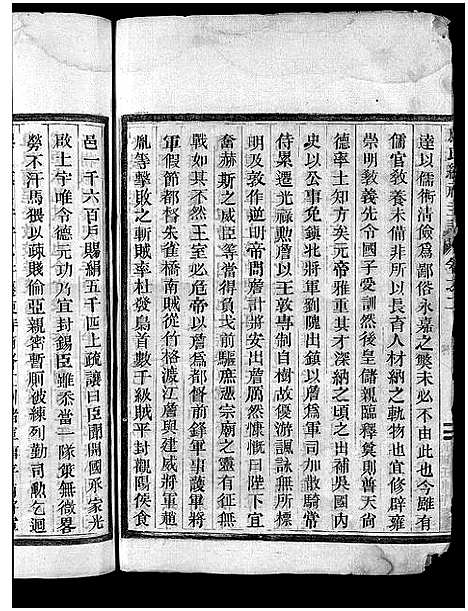 達以儒術清儉爲鄙俗永嘉之獘未必不由此也今雖有
儒官教養未備非所以長育人材納之軌物也宜修辟雍
崇明教義先令國子然後皇儲親臨釋奠則普天
德率土知方矣元帝雅重其才深納之頃之出補吳國內
史以公事免鎭北將軍劉隗出鎭以詹爲軍司加散騎常
侍累遷光祿勳詹以王敦專制自樹故優游諷詠無所標
明及敦作逆明帝問詹計將安出詹厲然慷慨曰陛下宜
奮赫斯之威臣等當得負戈前驅庶憑宗廟之靈有征無
戰如其不然王室必危帝以詹爲都督前鋒軍事護軍將
軍假節都督朱雀橋南賊從竹格渡江詹與建威將軍趙
胤等擊敗之斬賊率杜發梟首數千級賊平封觀陽侯食
邑一千六百戶賜絹五千匹上疏讓曰臣聞開國承家光
啟土宇唯令德元功乃宜封錫臣雖忝當一隊策無微畧
勞不汗馬猥以疎賤倫亞親密暫厠被練列勤司勳乞迴